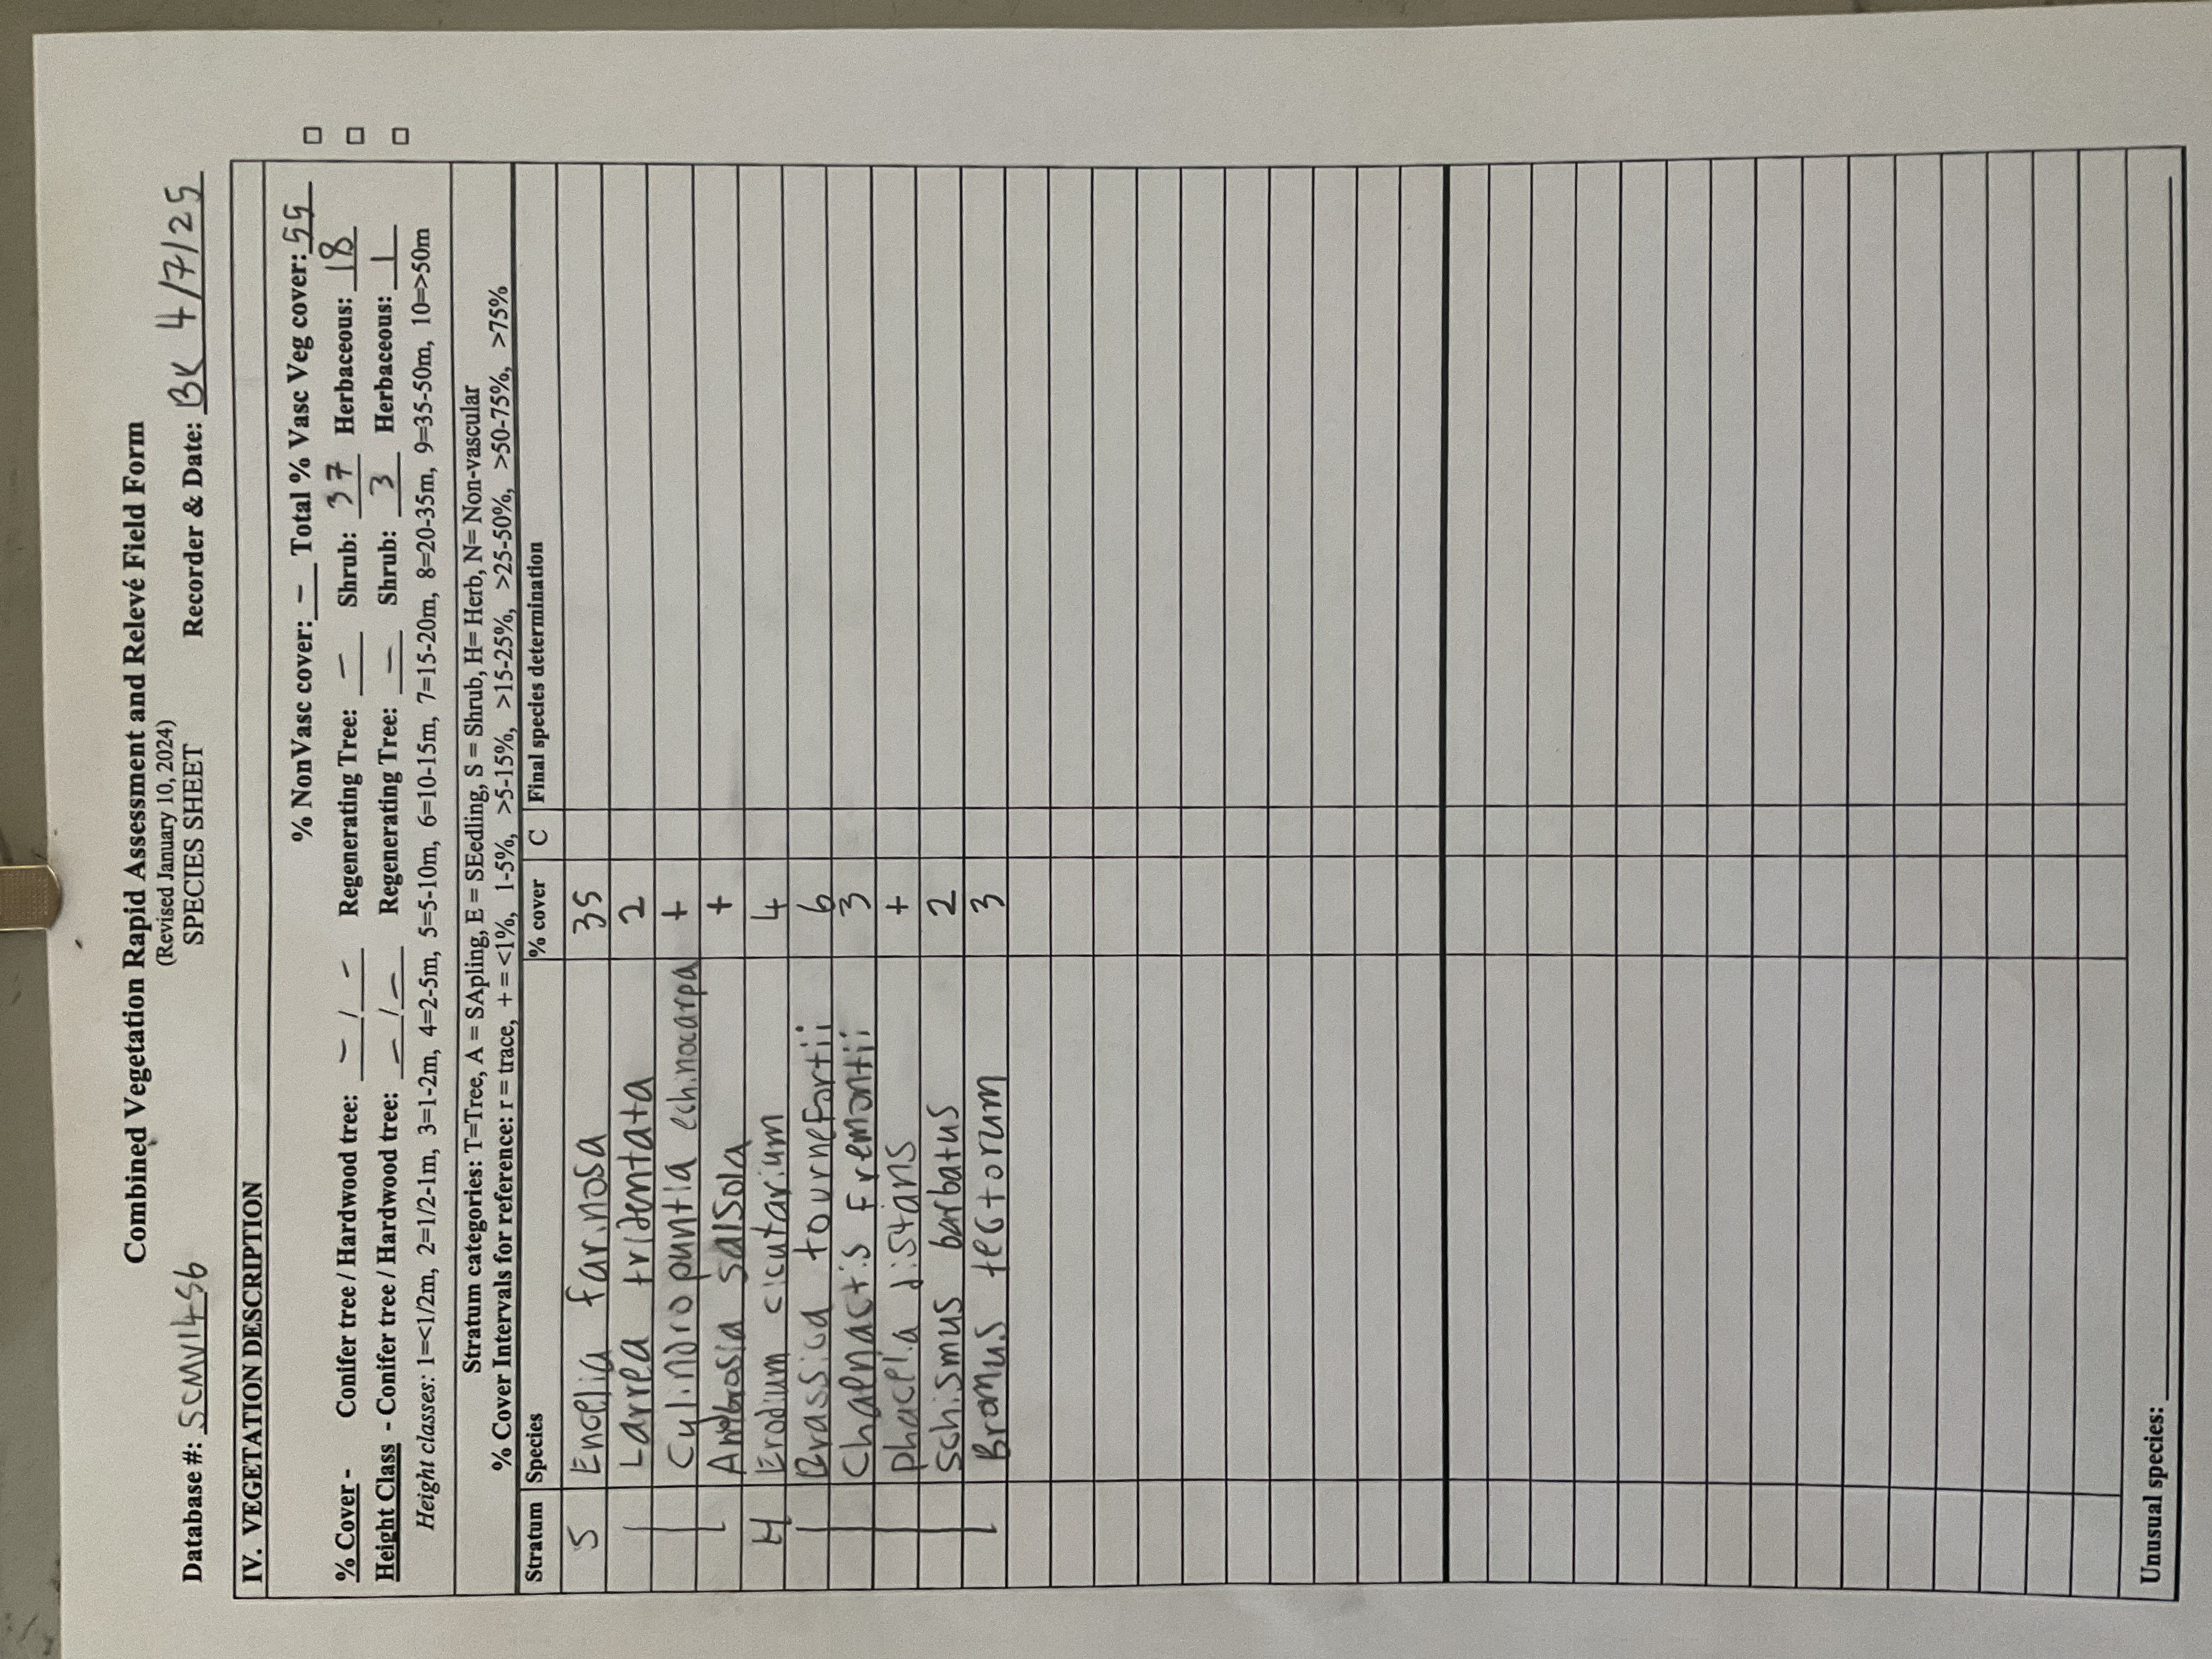 Combined Vegetation Rapid Assessment and Relevé Field Form
(Revised January 10, 2024)
SPECIES SHEET
Database #: SCMV1456 Recorder & Date: BK 4/7/25
IV. VEGETATION DESCRIPTION
% NonVasc cover: – Total % Vasc Veg cover: 55 □
% Cover - Conifer tree / Hardwood tree: – / – Regenerating Tree: – Shrub: 37 Herbaceous: 18 □
Height Class - Conifer tree / Hardwood tree: – / – Regenerating Tree: – Shrub: 3 Herbaceous: 1 □
Height classes: 1=<1/2m, 2=1/2-1m, 3=1-2m, 4=2-5m, 5=5-10m, 6=10-15m, 7=15-20m, 8=20-35m, 9=35-50m, 10=>50m
Stratum categories: T=Tree, A = SApling, E = SEedling, S = Shrub, H= Herb, N= Non-vascular
% Cover Intervals for reference: r = trace, + = <1%, 1-5%, >5-15%, >15-25%, >25-50%, >50-75%, >75%
Stratum Species % cover C Final species determination
S Encelia farinosa 35
Larrea tridentata 2
Cylindropuntia echinocarpa +
Ambrosia salsola +
H Erodium cicutarium 4
Brassica tournefortii 6
Chaenactis fremontii 3
phacelia distans +
Schismus barbatus 2
Bromus tectorum 3
Unusual species: